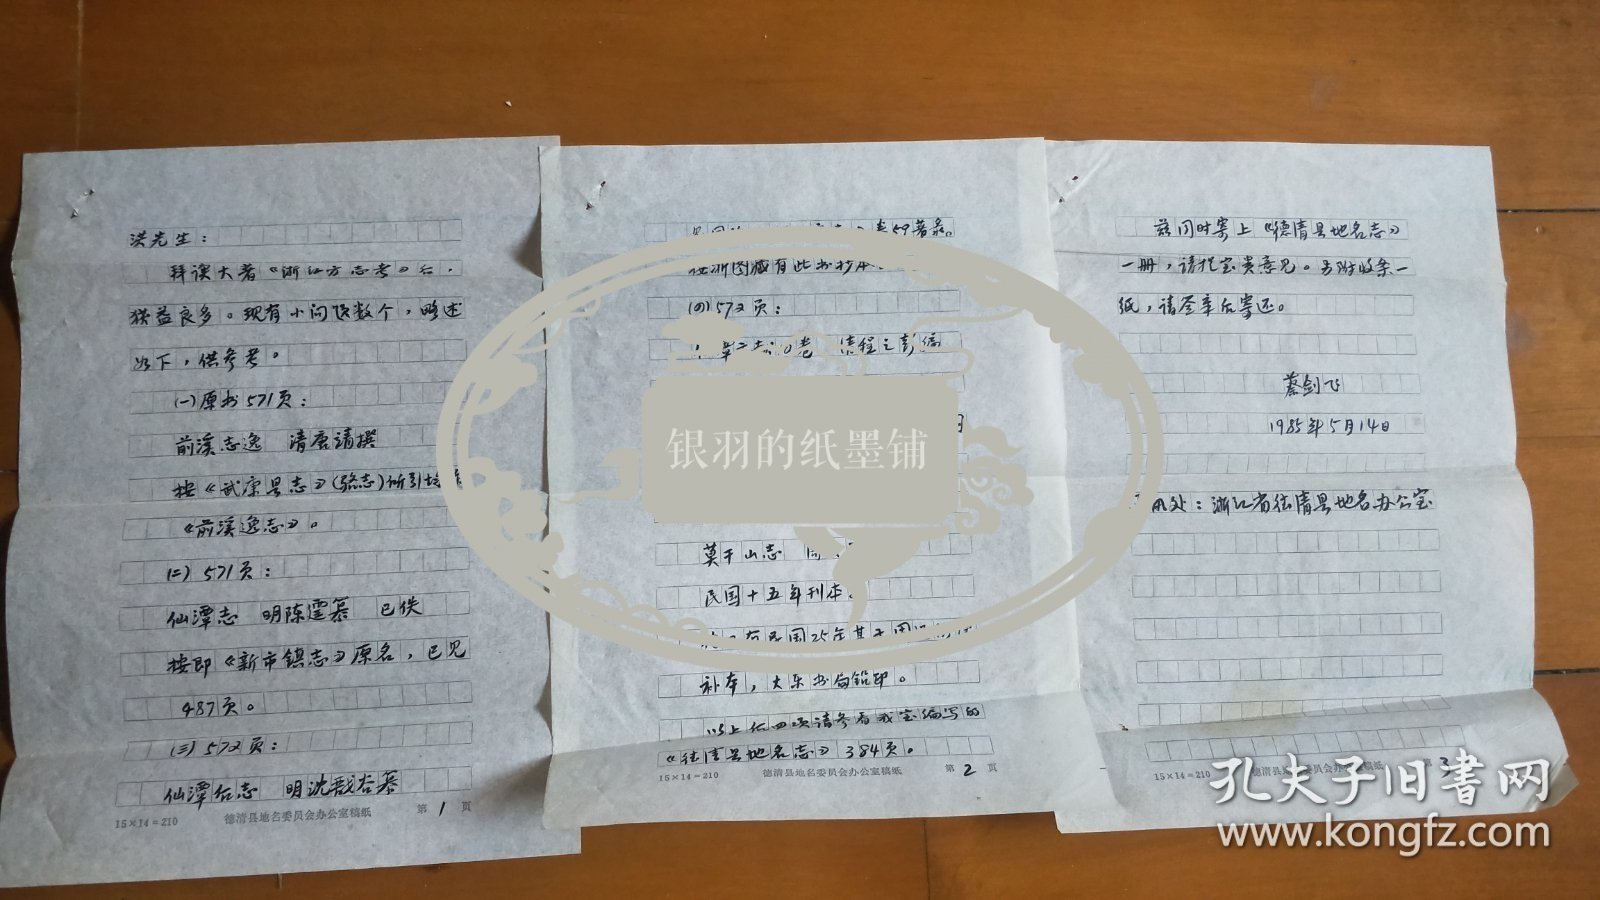 洪先生：
拜读大著《浙江方志考》后，
获益良多。现有小问题数个，略述
如下，供参考。
(一)原书571页：
前溪志逸 清唐靖撰
按《武康县志》(骆志)所引
《前溪逸志》。
(二)571页：
仙潭志 明陈霆纂 已佚
按即《新市镇志》原名，已见
487页。
(三)572页：
仙潭后志 明沈戬谷纂
15×14=210 德清县地名委员会办公室稿纸 第1页
卷59著录。
浙图藏有此书抄本
(四)572页：
清程之彭编
莫干山志 周
民国十五年刊本。
民国25年
补本，大东书局铅印。
以上后四项请参看我室编写的
《德清县地名志》384页。
15×14=210 德清县地名委员会办公室稿纸 第2页
兹同时寄上《德清县地名志》
一册，请提宝贵意见。另附收条一
纸，请签章后寄还。
蔡剑飞
1985年5月14日
处：浙江省德清县地名办公室
15×14=210 德清县地名委员会办公室稿纸 第3
银羽的纸墨铺
孔夫子旧书网
www.kongfz.com